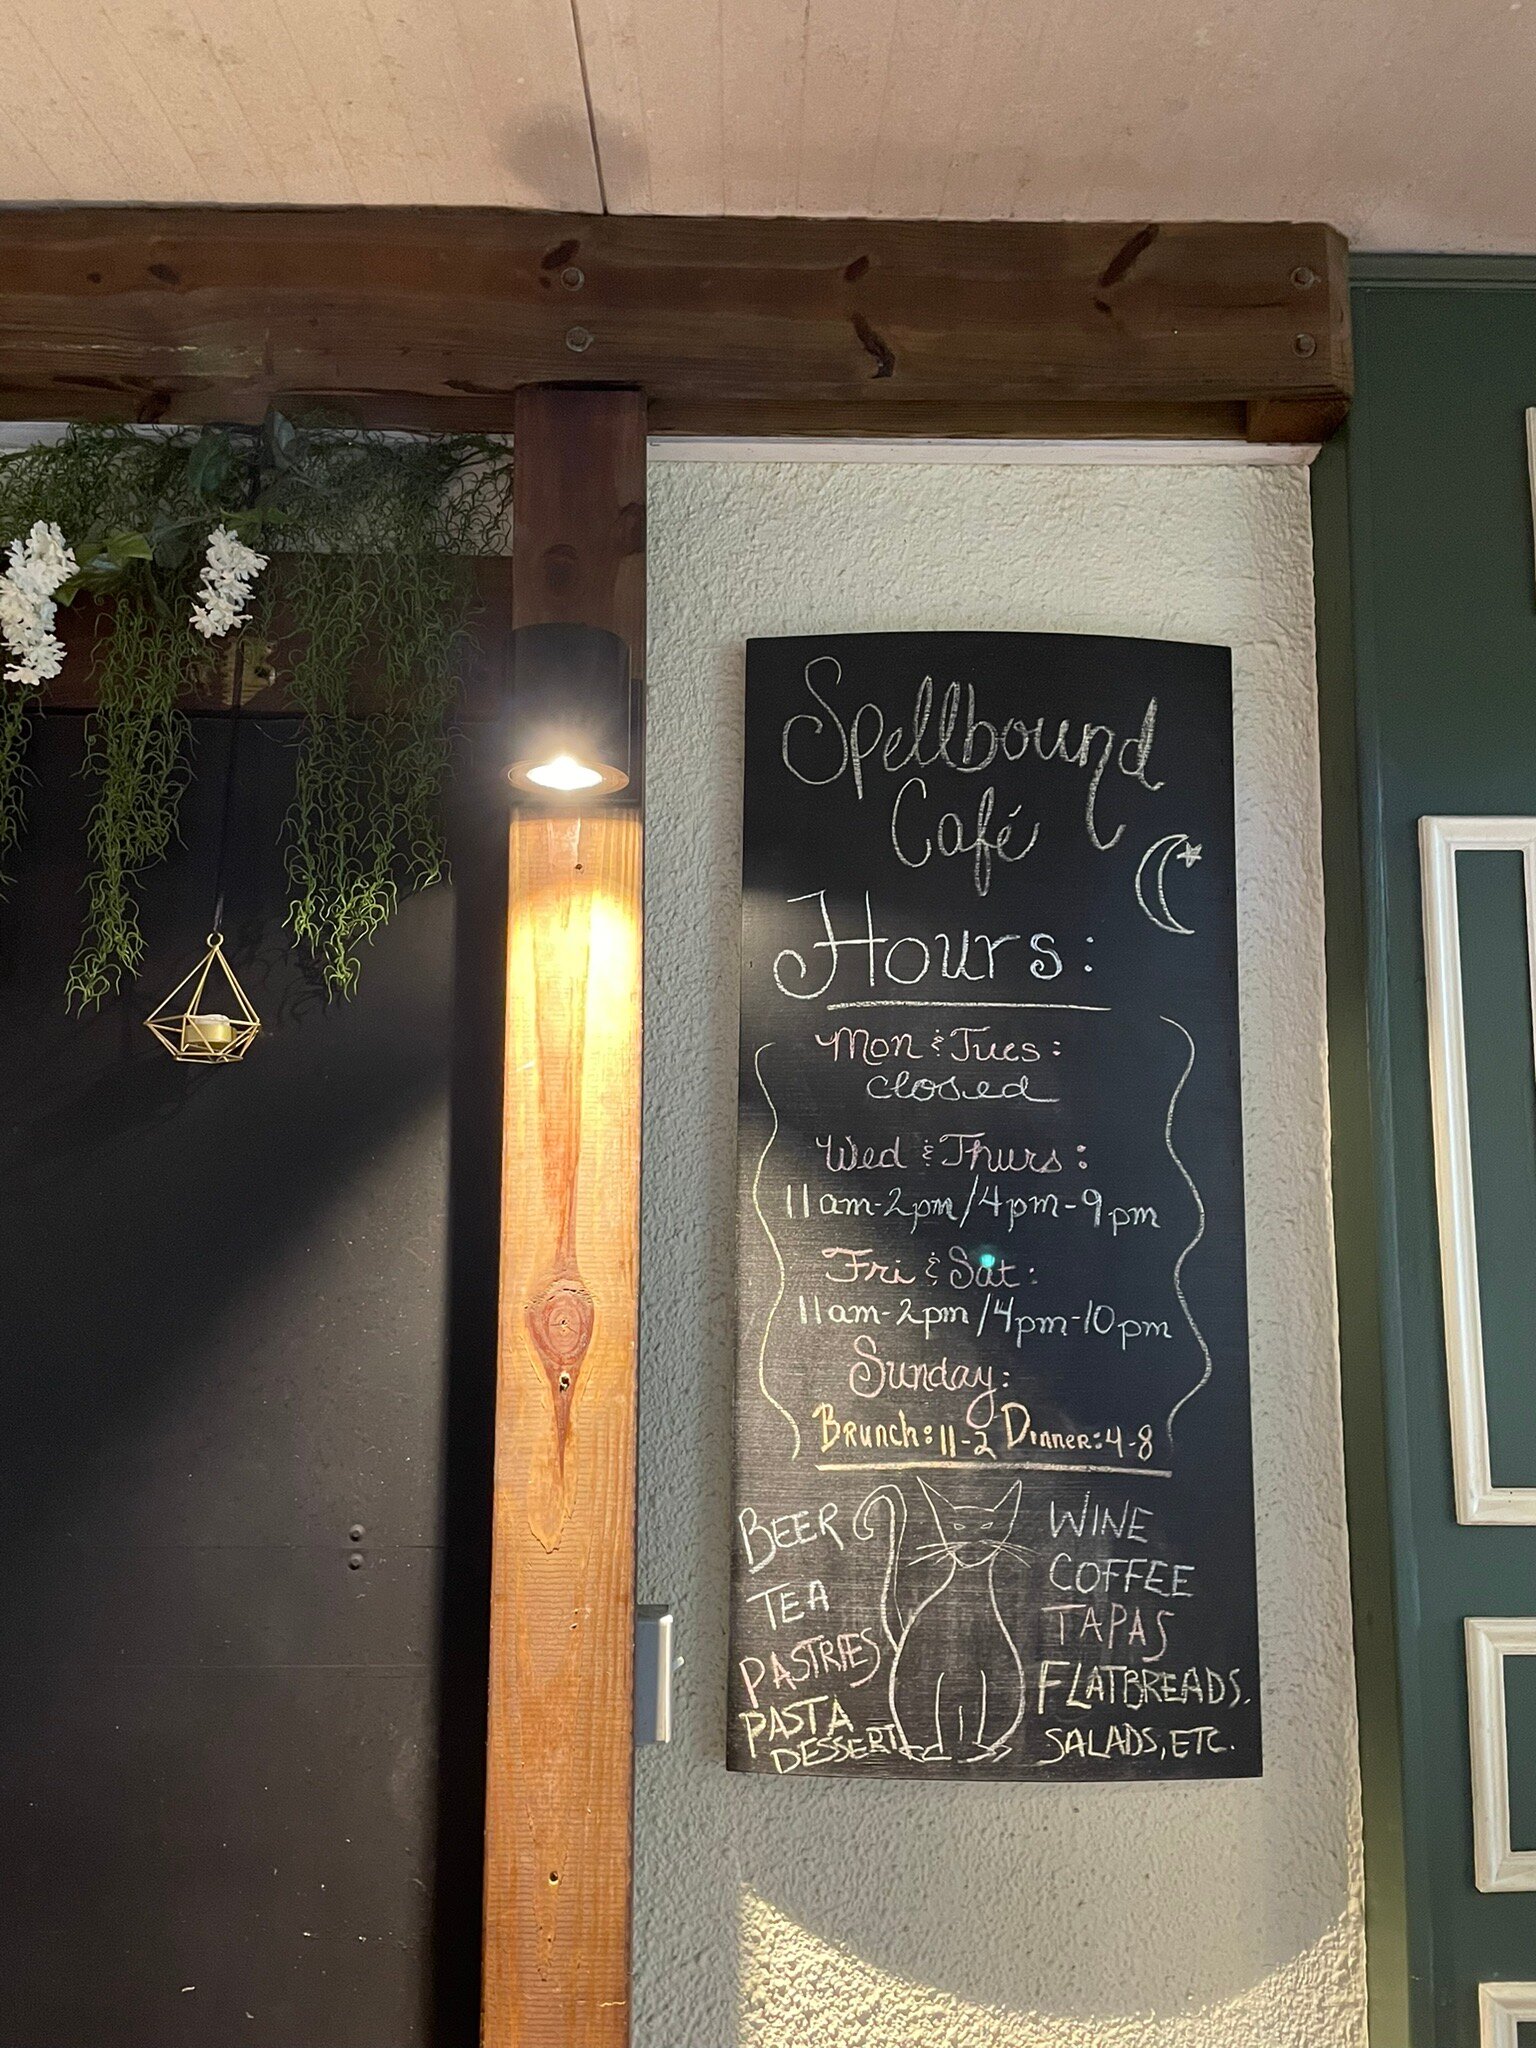 Spellbound
Café
Hours:
Mon & Tues:
closed
Wed & Thurs:
11am-2pm/4pm-9pm
Fri & Sat:
11am-2pm/4pm-10pm
Sunday:
Brunch:11-2 Dinner:4-8
BEER
TEA
PASTRIES
PASTA
DESSERT
WINE
COFFEE
TAPAS
FLATBREADS.
SALADS, ETC.